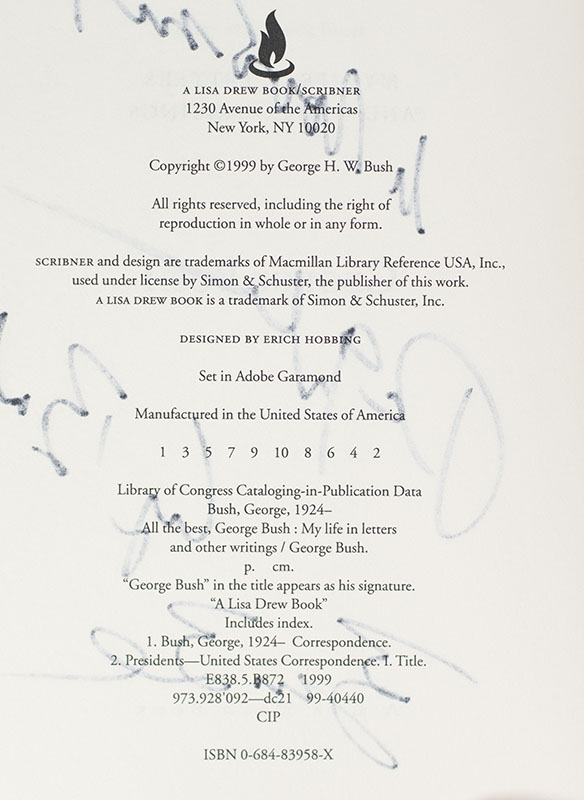 A LISA DREW BOOK/SCRIBNER
1230 Avenue of the Americas
New York, NY 10020
Copyright ©1999 by George H. W. Bush
All rights reserved, including the right of
reproduction in whole or in any form.
SCRIBNER and design are trademarks of Macmillan Library Reference USA, Inc.,
used under license by Simon & Schuster, the publisher of this work.
A LISA DREW BOOK is a trademark of Simon & Schuster, Inc.
DESIGNED BY ERICH HOBBING
Set in Adobe Garamond
Manufactured in the United States of America
1 3 5 7 9 10 8 6 4 2
Library of Congress Cataloging-in-Publication Data
Bush, George, 1924–
All the best, George Bush : My life in letters
and other writings / George Bush.
p. cm.
“George Bush” in the title appears as his signature.
“A Lisa Drew Book”
Includes index.
1. Bush, George, 1924– Correspondence.
2. Presidents—United States Correspondence. I. Title.
E838.5.B872 1999
973.928'092—dc21 99-40440
CIP
ISBN 0-684-83958-X